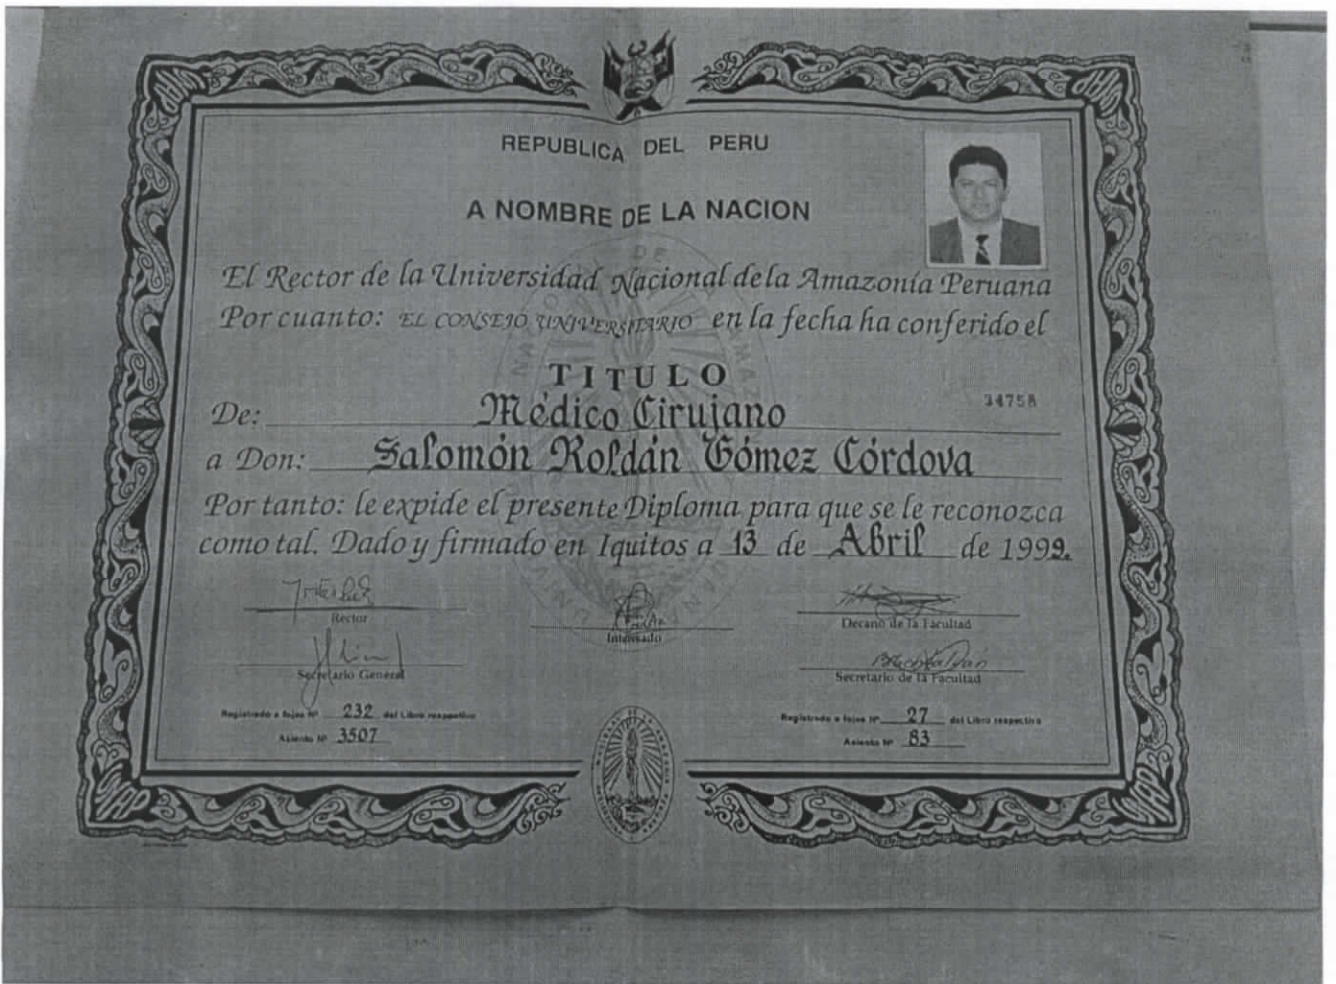 REPUBLICA DEL PERU
A NOMBRE DE LA NACION
El Rector de la Universidad Nacional de la Amazonía Peruana
Por cuanto: EL CONSEJO UNIVERSITARIO en la fecha ha conferido el
TITULO
34758
De: Médico Cirujano
a Don: Salomón Roldán Gómez Córdova
Por tanto: le expide el presente Diploma para que se le reconozca
como tal. Dado y firmado en Iquitos a 13 de Abril de 1999.
Rector
Interesado
Decano de la Facultad
Secretario General
Secretario de la Facultad
Registrado a fojas Nº 232 del Libro respectivo
Asiento Nº 3507
Registrado a fojas Nº 27 del Libro respectivo
Asiento Nº 83